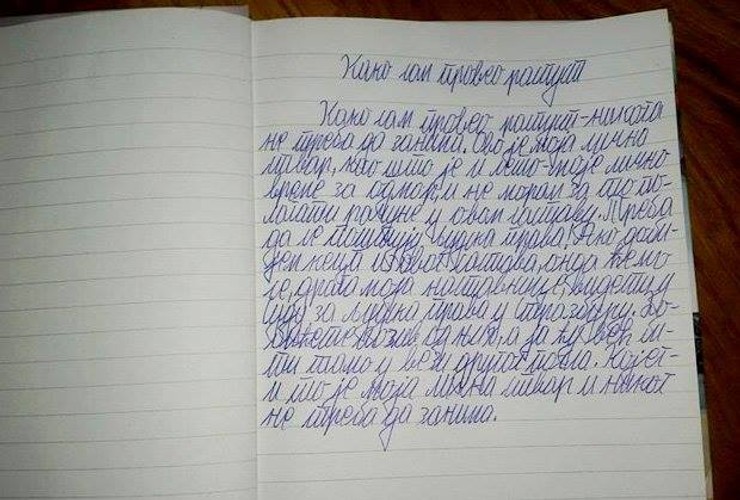 Како сам провео распуст
Како сам провео распуст-никога
не треба да занима. Ово је моја лична
ствар, као што је и лето-моје лично
време за одмор, и не морам за то по-
лагати рачуне у овом саставу. Треба
да се поштују људска права! Ако доби-
јем кеца из овог састава, онда ћемо
се, драга моја наставнице, видети у
суду за људска права у Стразбуру. До-
бићете позив од њих, а ја ћу већ би-
ти тамо у вези другог посла. Којег-
и то је моја лична ствар и никог
не треба да занима.